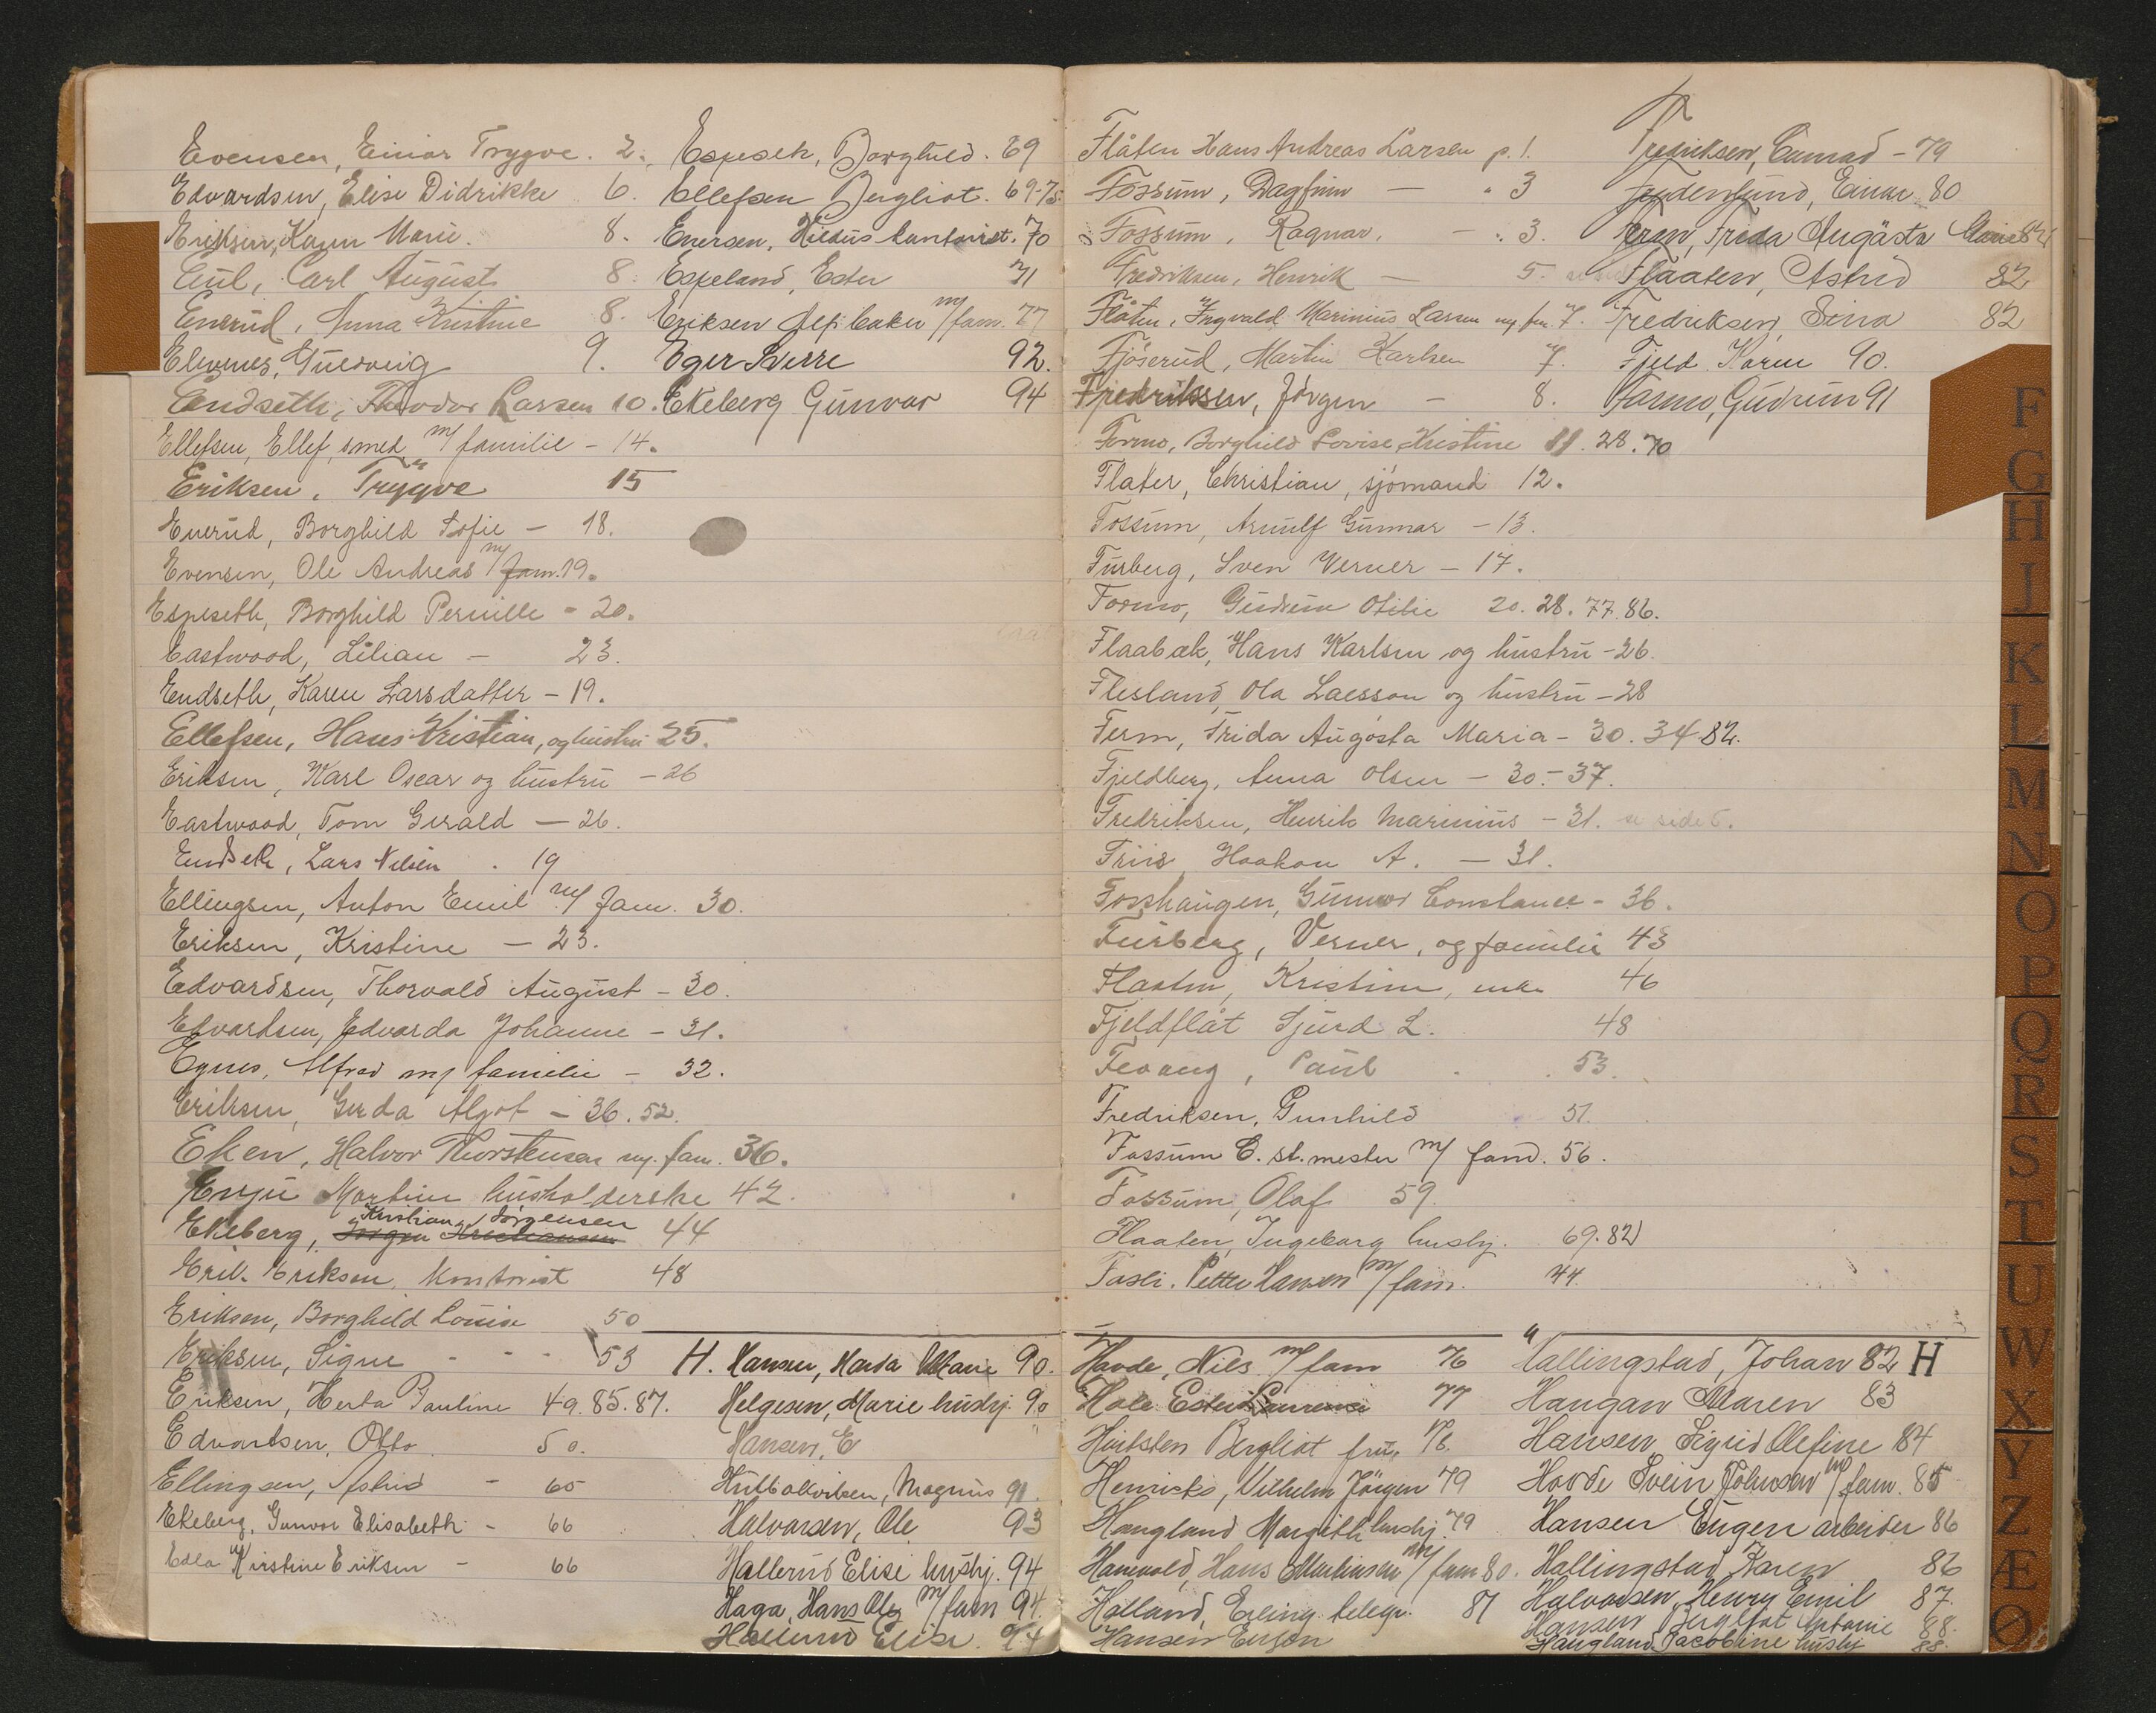 Evensen, Einar Trygve. 2.
Edvardsen, Elise Didrikke 6.
Eriksen, Karen Marie. 8.
Carl August 8.
Enerud, Anna Kristine 8.
Guldveig 9.
Endseth, Theodor Larsen 10.
Ellefsen, Ellef, smed m/ familie - 14.
Eriksen, Trygve 15
Enerud, Borghild Sofie - 18.
Evensen, Ole Andreas m/ fam. 19.
Espeseth, Borghild Pernille - 20.
Eastwood, Lilian - 23.
Endseth, Karen Larsdatter - 19.
Ellefsen, Hans Kristian, og hustru 25.
Eriksen, Karl Oscar og hustru - 26
Eastwood, Tom Gerald - 26.
Endseth, Lars Nilsen . 19
Ellingsen, Anton Emil m/ fam. 30.
Eriksen, Kristine - 23.
Edvardsen, Thorvald August - 30.
Edvardsen, Edvarda Johanne - 31.
Egnes, Alfred m/ familie - 32.
Eriksen, Gerda Algot - 36. 52.
Eken, Halvor Thorstensen m. fam. 36.
Martine husholderske 42.
Kristian Jørgensen
Ekeberg, Jørgen Kristiansen 44
Erik Eriksen, Kontorist 48
Eriksen, Borghild Louise 50
Eriksen, Signe - - - 53
Eriksen, Herta Pauline 49. 85. 87.
Edvardsen, Otto 50.
Ellingsen, Astrid - 65
Ekeberg, Gunvor Elisabeth - 66
Edla Kirstine Eriksen - 66
Espeseth, Borghild. 69
Ellefsen Bergliot. 69-75
Enersen, kontorist. 70
Espeland, Ester 71
Eriksen Alf baker m/ fam. 77
Eger Sverre 92.
Ekeberg Gunvor 94
H. Hansen, Marie 90.
Helgesen, Marie hushj. 90
Hansen, E
Magnus 91.
Halvorsen, Ole 93
Hallerud Elise hushj. 94
Haga, Hans Ole m/ fam 94.
Hallerud Elise. 94
F
Flåten Hans Andreas Larsen p. 1.
Fossum, Dagfinn - " 3
Fossum, Ragnar. - " 3.
Fredriksen, Henrik - 5.
Flåten, Ingvald Marinius Larsen m. fm. 7.
Fjøserud, Martin Karlsen 7.
Fredriksen, Jørgen - 8.
Formo, Borghild Lovise Kristine 11. 28. 70
Flater, Christian, sjømand 12.
Fossum, Arnulf Gunnar - 13.
Furberg, Sven Verner - 17.
Formo, Gudrun Otilie 20. 28. 77. 86.
Flaabæk, Hans Karlsen og hustru - 26.
Flesland, Ola Laesson og hustru - 28
Ferm, Frida Augøsta Maria - 30. 34 82.
Fjeldberg, Anna Olsen - 30. - 37.
Fredriksen, Henrik Marinius - 31. se side 5.
Friis, Haakon A. - 31.
Fosshaugen, Gunvor Constance - 36.
Furberg, Verner, og familie 43
Flaaten, Kristine, enke 46
Fjeldflåt Sjurd L. 48
Fevang, Paul . . 53.
Fredriksen, Gunhild 51.
Fossum C. st. mester m/ fam. 56.
Fossum, Olaf 59.
Flaaten, Ingeborg hushj. 69. 82
Fasli. Petter Hansen m/ fam. 44.
Fredriksen, Conrad - 79
Einar 80
Ferm, Frida Augästa Marie 82
Flaaten, Astrid 82
Fredriksen, Sina 82
Fjeld Karen 90.
Formo, Gudrun 91
Hovde, Nils m/ fam 76
Hole Ester 77
Bergliot fru 78.
Henricks, Vilhelm Jörgen 79
Haugland Margith hushj. 79
Hamvold, Hans Martinsen m/ fam 80.
Holland, Erling telegr. 81
Hansen
Hallingstad, Johan 82 H
Haugan Maren 83
Hansen, Sigrid Olefine 84
Hovde Svein Johnsen m/ fam. 85
Hansen Eugen arbeider 86
Hallingstad Karen 86
Halvorsen, Henry Emil 87.
Hansen Bergliot Antonie 88.
Haugland, Jacobine hushj 88.
F
G
H
J
K
L
M
N
O
P
Q
R
S
T
U
W
X
Y
Z
Æ
Ø